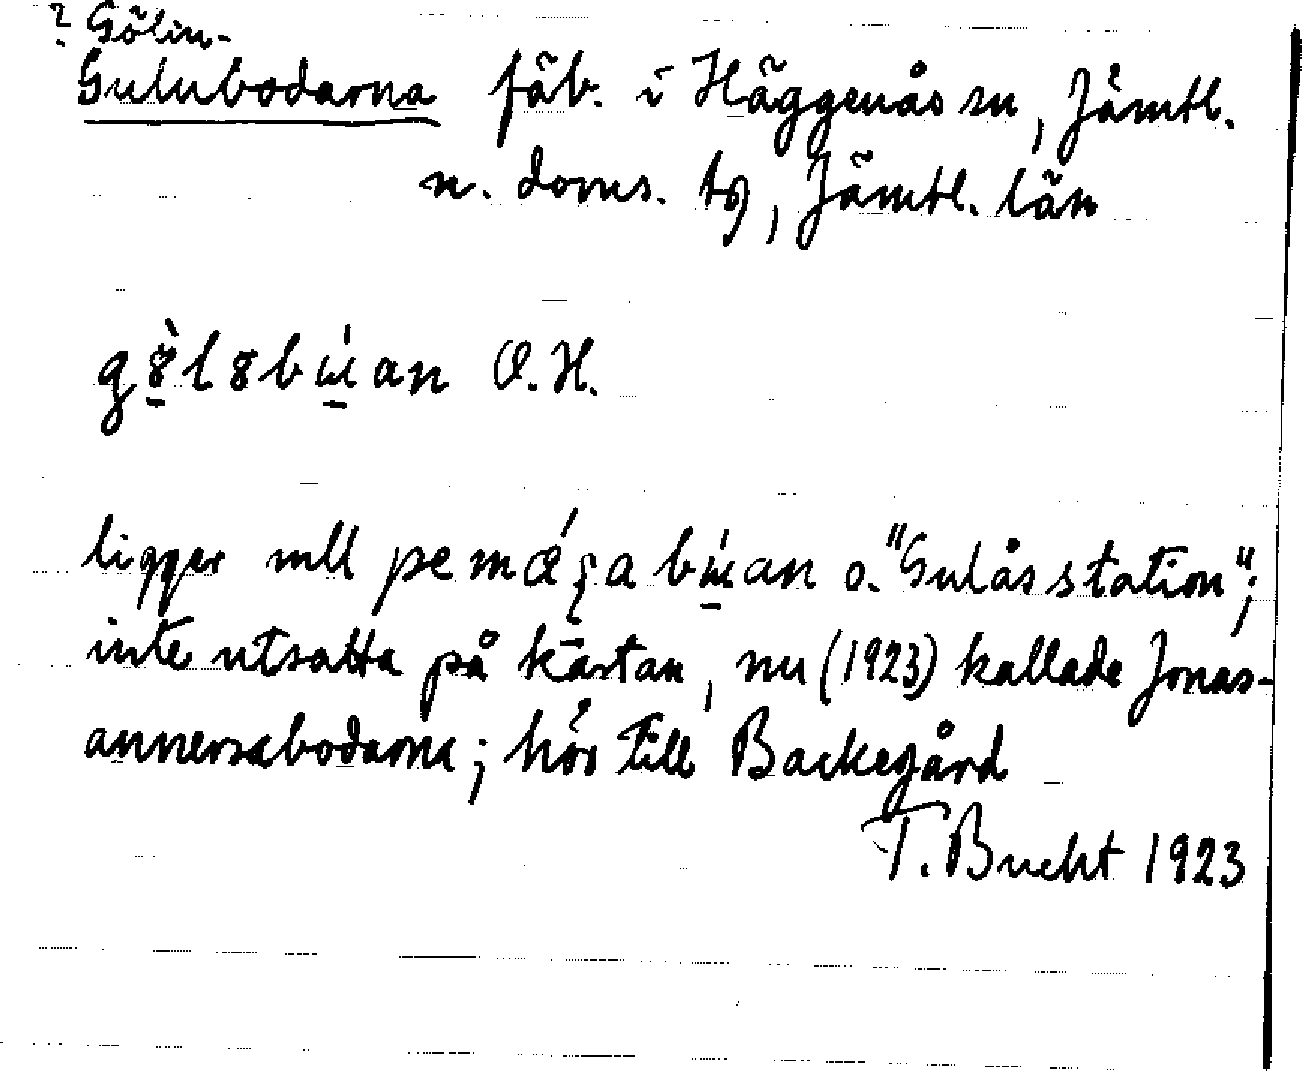 ? Gölin-
Gulubodarna fäb. i Häggenås sn, Jämtl.
n. doms. tg, Jämtl. län
O.H.
ligger mll o. "Gulås station";
inte utsatta på kartan, nu (1923) kallade Jonas-
annersabodarna; hör till Backegård
T. Bucht 1923